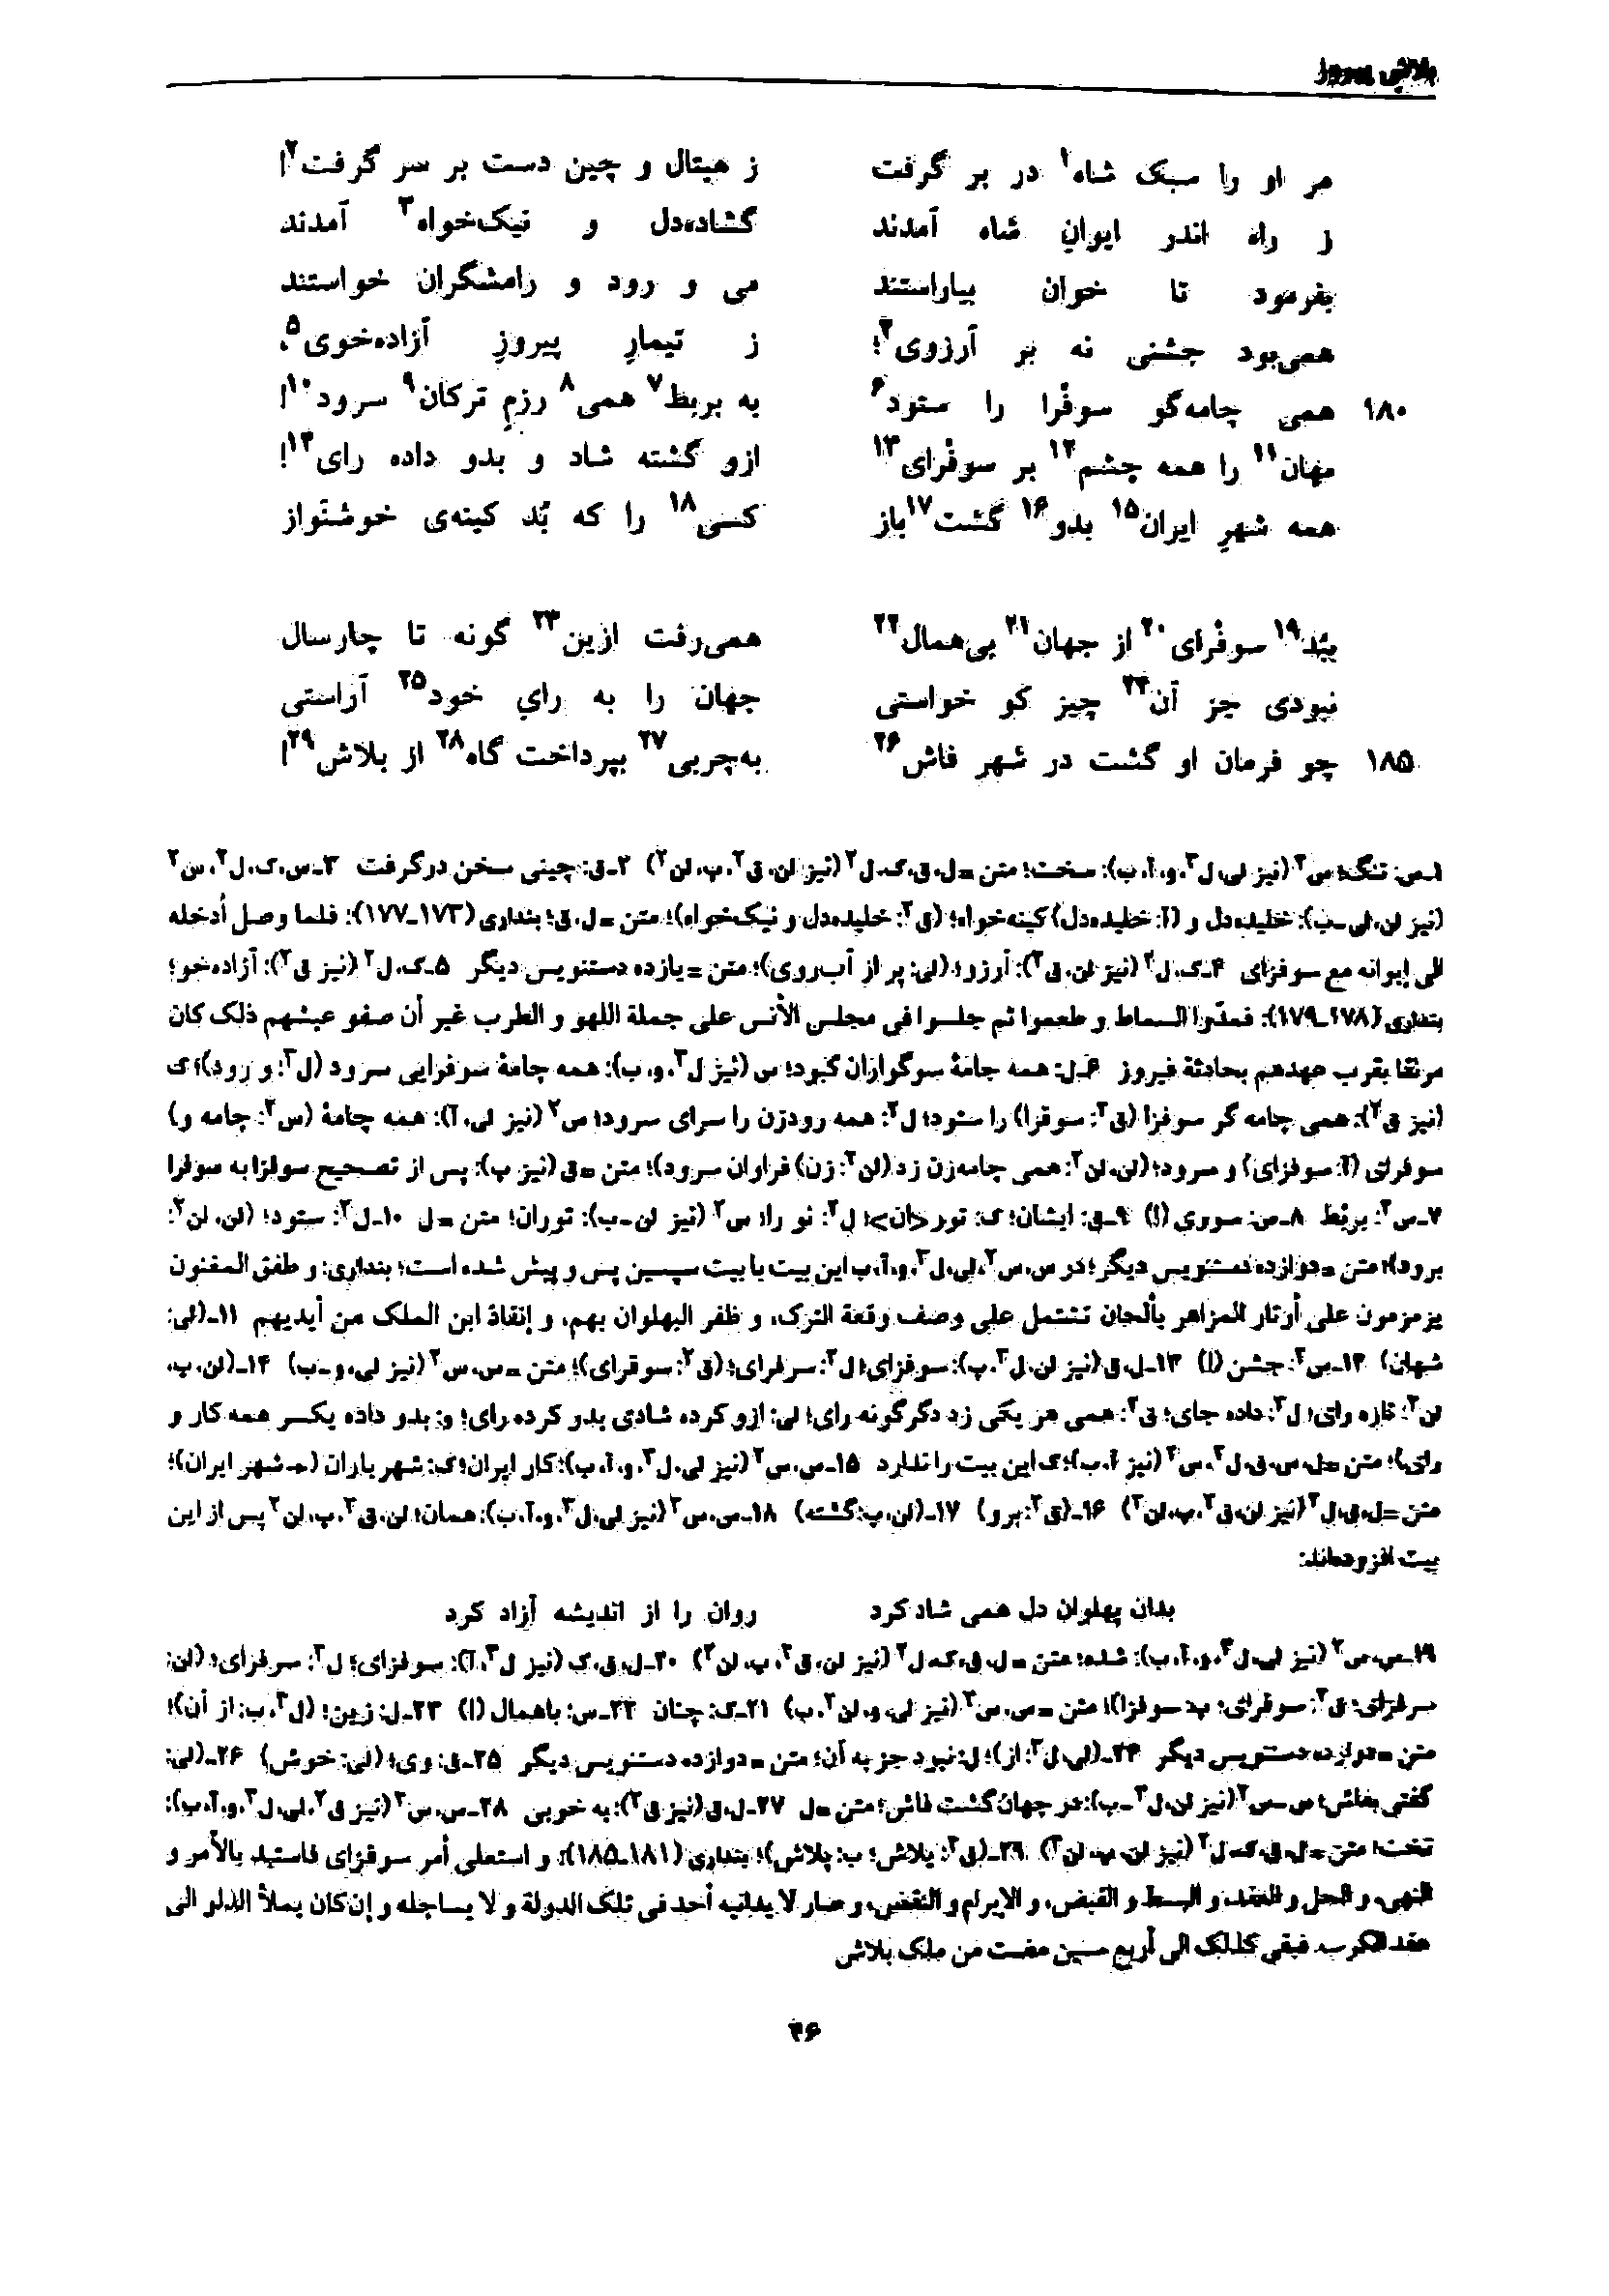 بلاش پیروز
مر او را سبک شاه۱ در بر گرفت ز هیتال و چین دست بر سر گرفت۲!
ز راه اندر ایوانِ شاه آمدند گشاده‌دل و نیک‌خواه۳ آمدند
بفرمود تا خوان بیاراستند می و رود و رامشگران خواستند
همی‌بود جشنی نه بر آرزوی۴؛ ز تیمارِ پیروزِ آزاده‌خوی۵.
۱۸۰ همی چامه‌گو سوفرا را ستود۶ به بربط۷ همی۸ رزمِ ترکان۹ سرود۱۰!
مهان۱۱ را همه چشم۱۲ بر سوفرای۱۳ ازو گشته شاد و بدو داده رای۱۴!
همه شهرِ ایران۱۵ بدو۱۶ گشت۱۷ باز کسی۱۸ را که بُد کینه‌ی خوشنواز
ببُد۱۹ سوفرای۲۰ از جهان۲۱ بی‌همال۲۲ همی‌رفت ازین۲۳ گونه تا چارسال
نبودی جز آن۲۴ چیز کو خواستی جهان را به رایِ خود۲۵ آراستی
۱۸۵ چو فرمان او گشت در شهر فاش۲۶ به‌چربی۲۷ بپرداخت گاه۲۸ از بلاش۲۹!
۱ـ س: تنگ؛ س۲ (نیز لی، ل۳، و، آ، ب): سخت؛ متن = ل، ق، ک، ل۲ (نیز لن، ق۲، پ، لن۲) ۲ـ ق: چینی سخن درگرفت ۳ـ س، ک، ل۲، س۲
(نیز لن، لی ـ ب): خلیده‌دل و (آ: خلیده‌دل) کینه‌خواه؛ (ق۲: خلیده‌دل و نیک‌خواه)؛ متن = ل، ق؛ بنداری (۱۷۳ـ۱۷۷): فلما وصل أدخله
الی إیوانه مع سوفزای ۴ـ ک، ل۲ (نیز لن، ق۲): آرزو؛ (لی: پر از آب‌روی)؛ متن = یازده دستنویس دیگر ۵ـ ک، ل۲ (نیز ق۲): آزاده‌خو؛
بنداری (۱۷۸ـ۱۷۹): فمدّوا السماط و طعموا ثم جلسوا فی مجلس الأنس علی جملة اللهو و الطرب غیر أن صفو عیشهم ذلک کان
مرنقا بقرب عهدهم بحادثة فیروز ۶ـ ل: همه جامهٔ سوگواران کبود؛ س (نیز ل۳، و، ب): همه چامهٔ سوفرایی سرود (ل۳: و رود)؛ ک
(نیز ق۲): همی چامه گر سوفزا (ق۲: سوقرا) را ستود؛ ل۲: همه رودزن را سرای سرود؛ س۲ (نیز لی، آ): همه چامهٔ (س۲: چامه و)
سوفرای (آ: سوفزای) و سرود؛ (لن، لن۲: همی چامه‌زن زد (لن۲: زن) فراوان سرود)؛ متن = ق (نیز پ): پس از تصحیح سوفزا به سوفرا
۷ـ س۲: بربُط ۸ـ س: سوری (!) ۹ـ ق: ایشان؛ ک: تور<ان>؛ ل۲: نو راد؛ س۲ (نیز لن ـ ب): توران؛ متن = ل ۱۰ـ ل۲: ستود؛ (لن، لن۲:
برود)؛ متن = دوازده دستنویس دیگر؛ در س، س۲، لی، ل۳، و، آ، ب این بیت با بیت سپسین پس و پیش شده است؛ بنداری: و طفق المغنون
یزمزمون علی أوتار المزاهر بألحان تشتمل علی وصف وقعة الترک، و ظفر البهلوان بهم، و إنقاذ ابن الملک من أیدیهم ۱۱ـ (لی:
شهان) ۱۲ـ س۲: جشن (!) ۱۳ـ ل، ق (نیز لن، ل۳، پ): سوفزای؛ ل۲: سرفرای؛ (ق۲: سوقرای)؛ متن = س، س۲ (نیز لی، و ـ ب) ۱۴ـ (لن، پ،
لن۲: تازه رای؛ ل۳: داده جای؛ ق۲: همی هر یکی زد دگرگونه رای؛ لی: ازو کرده شادی بدو کرده رای؛ و: بدو داده یکسر همه کار و
رای)؛ متن = ل، س، ق، ل۲، س۲ (نیز آ، ب)؛ ک این بیت را ندارد ۱۵ـ س، س۲ (نیز لی، ل۳، و، آ، ب): کار ایران؛ ک: شهر یاران (← شهر ایران)؛
متن = ل، ق، ل۲ (نیز لن، ق۲، پ، لن۲) ۱۶ـ (ق۲: برو) ۱۷ـ (لن، پ: گشته) ۱۸ـ س، س۲ (نیز لی، ل۳، و، آ، ب): همان؛ لن، ق۲، پ، لن۲ پس از این
بیت افزوده‌اند:
بدان پهلوان دل همی شاد کرد روان را از اندیشه آزاد کرد
۱۹ـ س، س۲ (نیز لی، ل۳، و، آ، ب): شده؛ متن = ل، ق، ک، ل۲ (نیز لن، ق۲، پ، لن۲) ۲۰ـ ل، ق، ک (نیز ل۳، آ): سوفزای؛ ل۲: سرفرای؛ (لن:
سرفزای؛ ق۲: سوقرای؛ پ: سوفزا)؛ متن = س، س۲ (نیز لی، و، لن۲، ب) ۲۱ـ ک: چنان ۲۲ـ س: باهمال (!) ۲۳ـ ل: زین؛ (ل۳، ب: از آن)؛
متن = دوازده دستنویس دیگر ۲۴ـ (لی، ل۳: از)؛ ل: نبود جز به آن؛ متن = دوازده دستنویس دیگر ۲۵ـ ق: وی؛ (لی: خوش) ۲۶ـ (لی:
گفتی بفاش؛ س ـ س۲ (نیز لن، ل۳ ـ ب): در جهان گشت فاش؛ متن = ل ۲۷ـ ل، ق (نیز ق۲): به خوبی ۲۸ـ س، س۲ (نیز ق۲، لی، ل۳، و، آ، ب):
تخت؛ متن = ل، ق، ک، ل۲ (نیز لن، پ، لن۲) ۲۹ـ (ق۲: یلاش؛ ب: پلاش)؛ بنداری (۱۸۱ـ۱۸۵): و استعلی أمر سوفزای فاستبد بالأمر و
النهی، و الحل و العقد، و البسط و القبض، و الإبرام و النقض، و صار لا یدانیه أحد فی تلک الدولة و لا یساجله و إن کان یملأ الدلو الی
عقد الکرب. فبقی کذلک الی أربع سنین مضت من ملک بلاش
۴۶